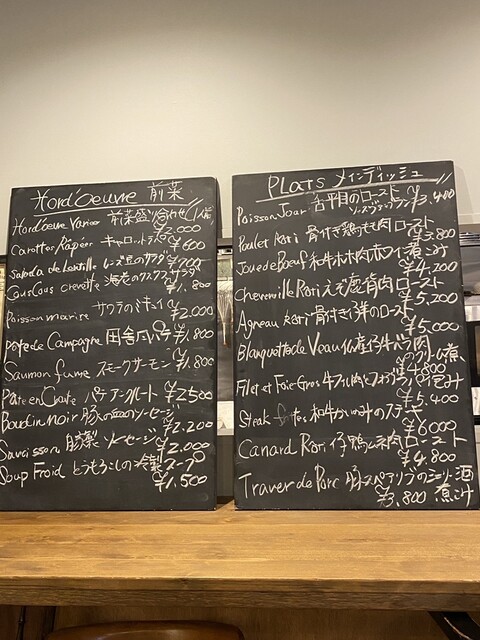 Hord'oeuvre 前菜
Hord'oeuvre Varier 前菜盛り合わせ(1人前)
¥2.000
Carottes Rapéer キャロットラペ
¥600
Salada de lentille レンズ豆のサラダ
¥700
Couscous crevette 海老のクスクスサラダ
¥1.800
Poisson marine サワラのミキュイ
¥2.000
Pate de Campagne 田舎風パテ ¥1.800
Saumon fume スモークサーモン
¥1.800
Pate en Croute パテアンクルート ¥2500
Boudin noir 豚の血のソーセージ
¥2.200
Saucisson 自家製ソーセージ
¥2.000
Soup Froid とうもろこしの冷製スープ
¥1.500
Plats メインディッシュ
Poisson Jour 舌平目のロースト
ソースブールブラン ¥3.400
Poulet Roti 骨付き鶏もも肉ロースト
¥3.800
Joue de Boeuf 和牛ホホ肉赤ワイン煮こみ
¥4.200
Chevreuille Roti えぞ鹿背肉ロースト
¥5.200
Agneau Roti 骨付き仔羊のロースト
¥5.000
Blanquette de Veau 仏産仔牛バラ肉
のクリーム煮
¥4.800
Filet et Foie Gros 牛フィレ肉とフォアグラのパイ包み
¥5.400
Steak frites 和牛かいのみのステーキ
¥6000
Canard Roti 仔鴨ムネ肉ロースト
¥4.800
Traver de Porc 豚スペアリブのシェリー酒
煮汁
¥3.800